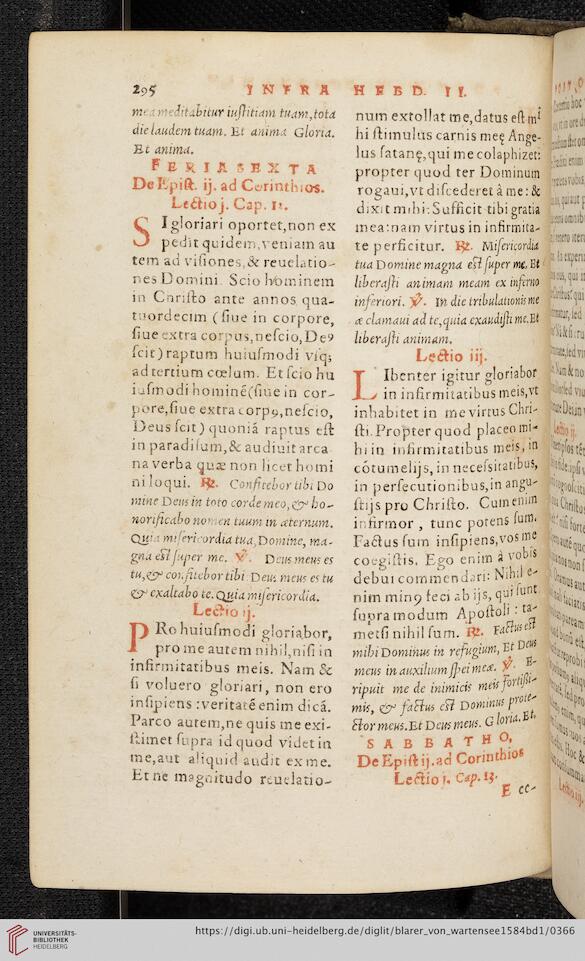 295 INFRA HEBD. II.
mea meditabitur iuſtitiam tuam, tota
die laudem tuam. Et anima Gloria.
Et anima.
FERIA SEXTA
De Epiſt. ij. ad Corinthios.
Lectio j. Cap. 12.
SI gloriari oportet, non ex
pedit quidem, veniam au
tem ad viſiones, & reuelatio-
nes Domini. Scio hominem
in Chriſto ante annos qua-
tuordecim (ſiue in corpore,
ſiue extra corpus, neſcio, Deꝰ
ſcit) raptum huiuſmodi vſq;
ad tertium cœlum. Et ſcio hu
iuſmodi hominē (ſiue in cor-
pore, ſiue extra corpꝰ, neſcio,
Deus ſcit) quoniā raptus eſt
in paradiſum, & audiuit arca
na verba quæ non licet homi
ni loqui. ℟. Confitebor tibi Do
mine Deus in toto corde meo, & ho-
norificabo nomen tuum in æternum.
Quia miſericordia tua, Domine, ma-
gna eſt ſuper me. ℣. Deus meus es
tu, & confitebor tibi Deus meus es tu
& exaltabo te. Quia miſericordia.
Lectio ij.
PRo huiuſmodi gloriabor,
pro me autem nihil, niſi in
infirmitatibus meis. Nam &
ſi voluero gloriari, non ero
inſipiens: veritatē enim dicā.
Parco autem, ne quis me exi-
ſtimet ſupra id quod videt in
me, aut aliquid audit ex me.
Et ne magnitudo reuelatio-
num extollat me, datus eſt mi
hi ſtimulus carnis meę Ange-
lus ſatanę, qui me colaphizet:
propter quod ter Dominum
rogaui, vt diſcederet à me: &
dixit mihi: Sufficit tibi gratia
mea: nam virtus in infirmita-
te perficitur. ℟. Miſericordia
tua Domine magna eſt ſuper me, Et
liberaſti animam meam ex inferno
inferiori. ℣. In die tribulationis me
æ clamaui ad te, quia exaudiſti me. Et
liberaſti animam.
Lectio iij.
LIbenter igitur gloriabor
in infirmitatibus meis, vt
inhabitet in me virtus Chri-
ſti. Propter quod placeo mi-
hi in infirmitatibus meis, in
cōtumelijs, in neceſsitatibus,
in perſecutionibus, in angu-
ſtijs pro Chriſto. Cum enim
infirmor, tunc potens ſum.
Factus ſum inſipiens, vos me
coegiſtis. Ego enim à vobis
debui commendari: Nihil e-
nim minꝰ feci ab ijs, qui ſunt
ſupra modum Apoſtoli: ta-
metſi nihil ſum. ℟. Factus eſt
mihi Dominus in refugium, Et Deus
meus in auxilium ſpei meæ. ℣. E-
ripuit me de inimicis meis fortiſsi-
mis, & factus eſt Dominus prote-
ctor meus. Et Deus meus. Gloria. Et.
SABBATHO,
De Epiſt ij. ad Corinthios
Lectio j. Cap. 13.
E cc-
UNIVERSITÄTS-
BIBLIOTHEK
HEIDELBERG
https://digi.ub.uni-heidelberg.de/diglit/blarer_von_wartensee1584bd1/0366